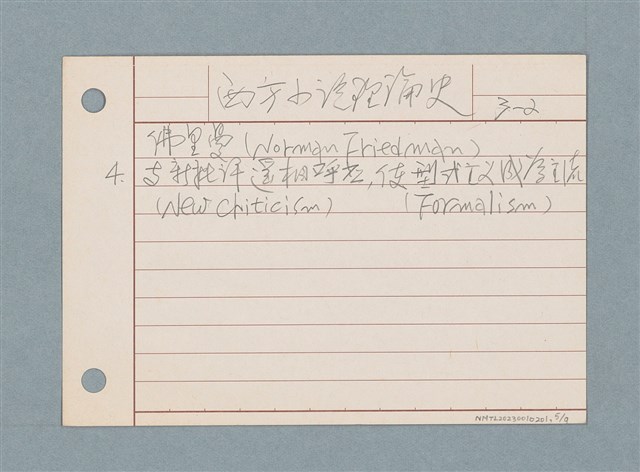 西方小說理論史
3-2
佛里曼(Norman Friedman)
4. 与新批評遥相呼应,使型式主义成为主流
(New Criticism) (Formalism)
NMTL20230010201, 5/9